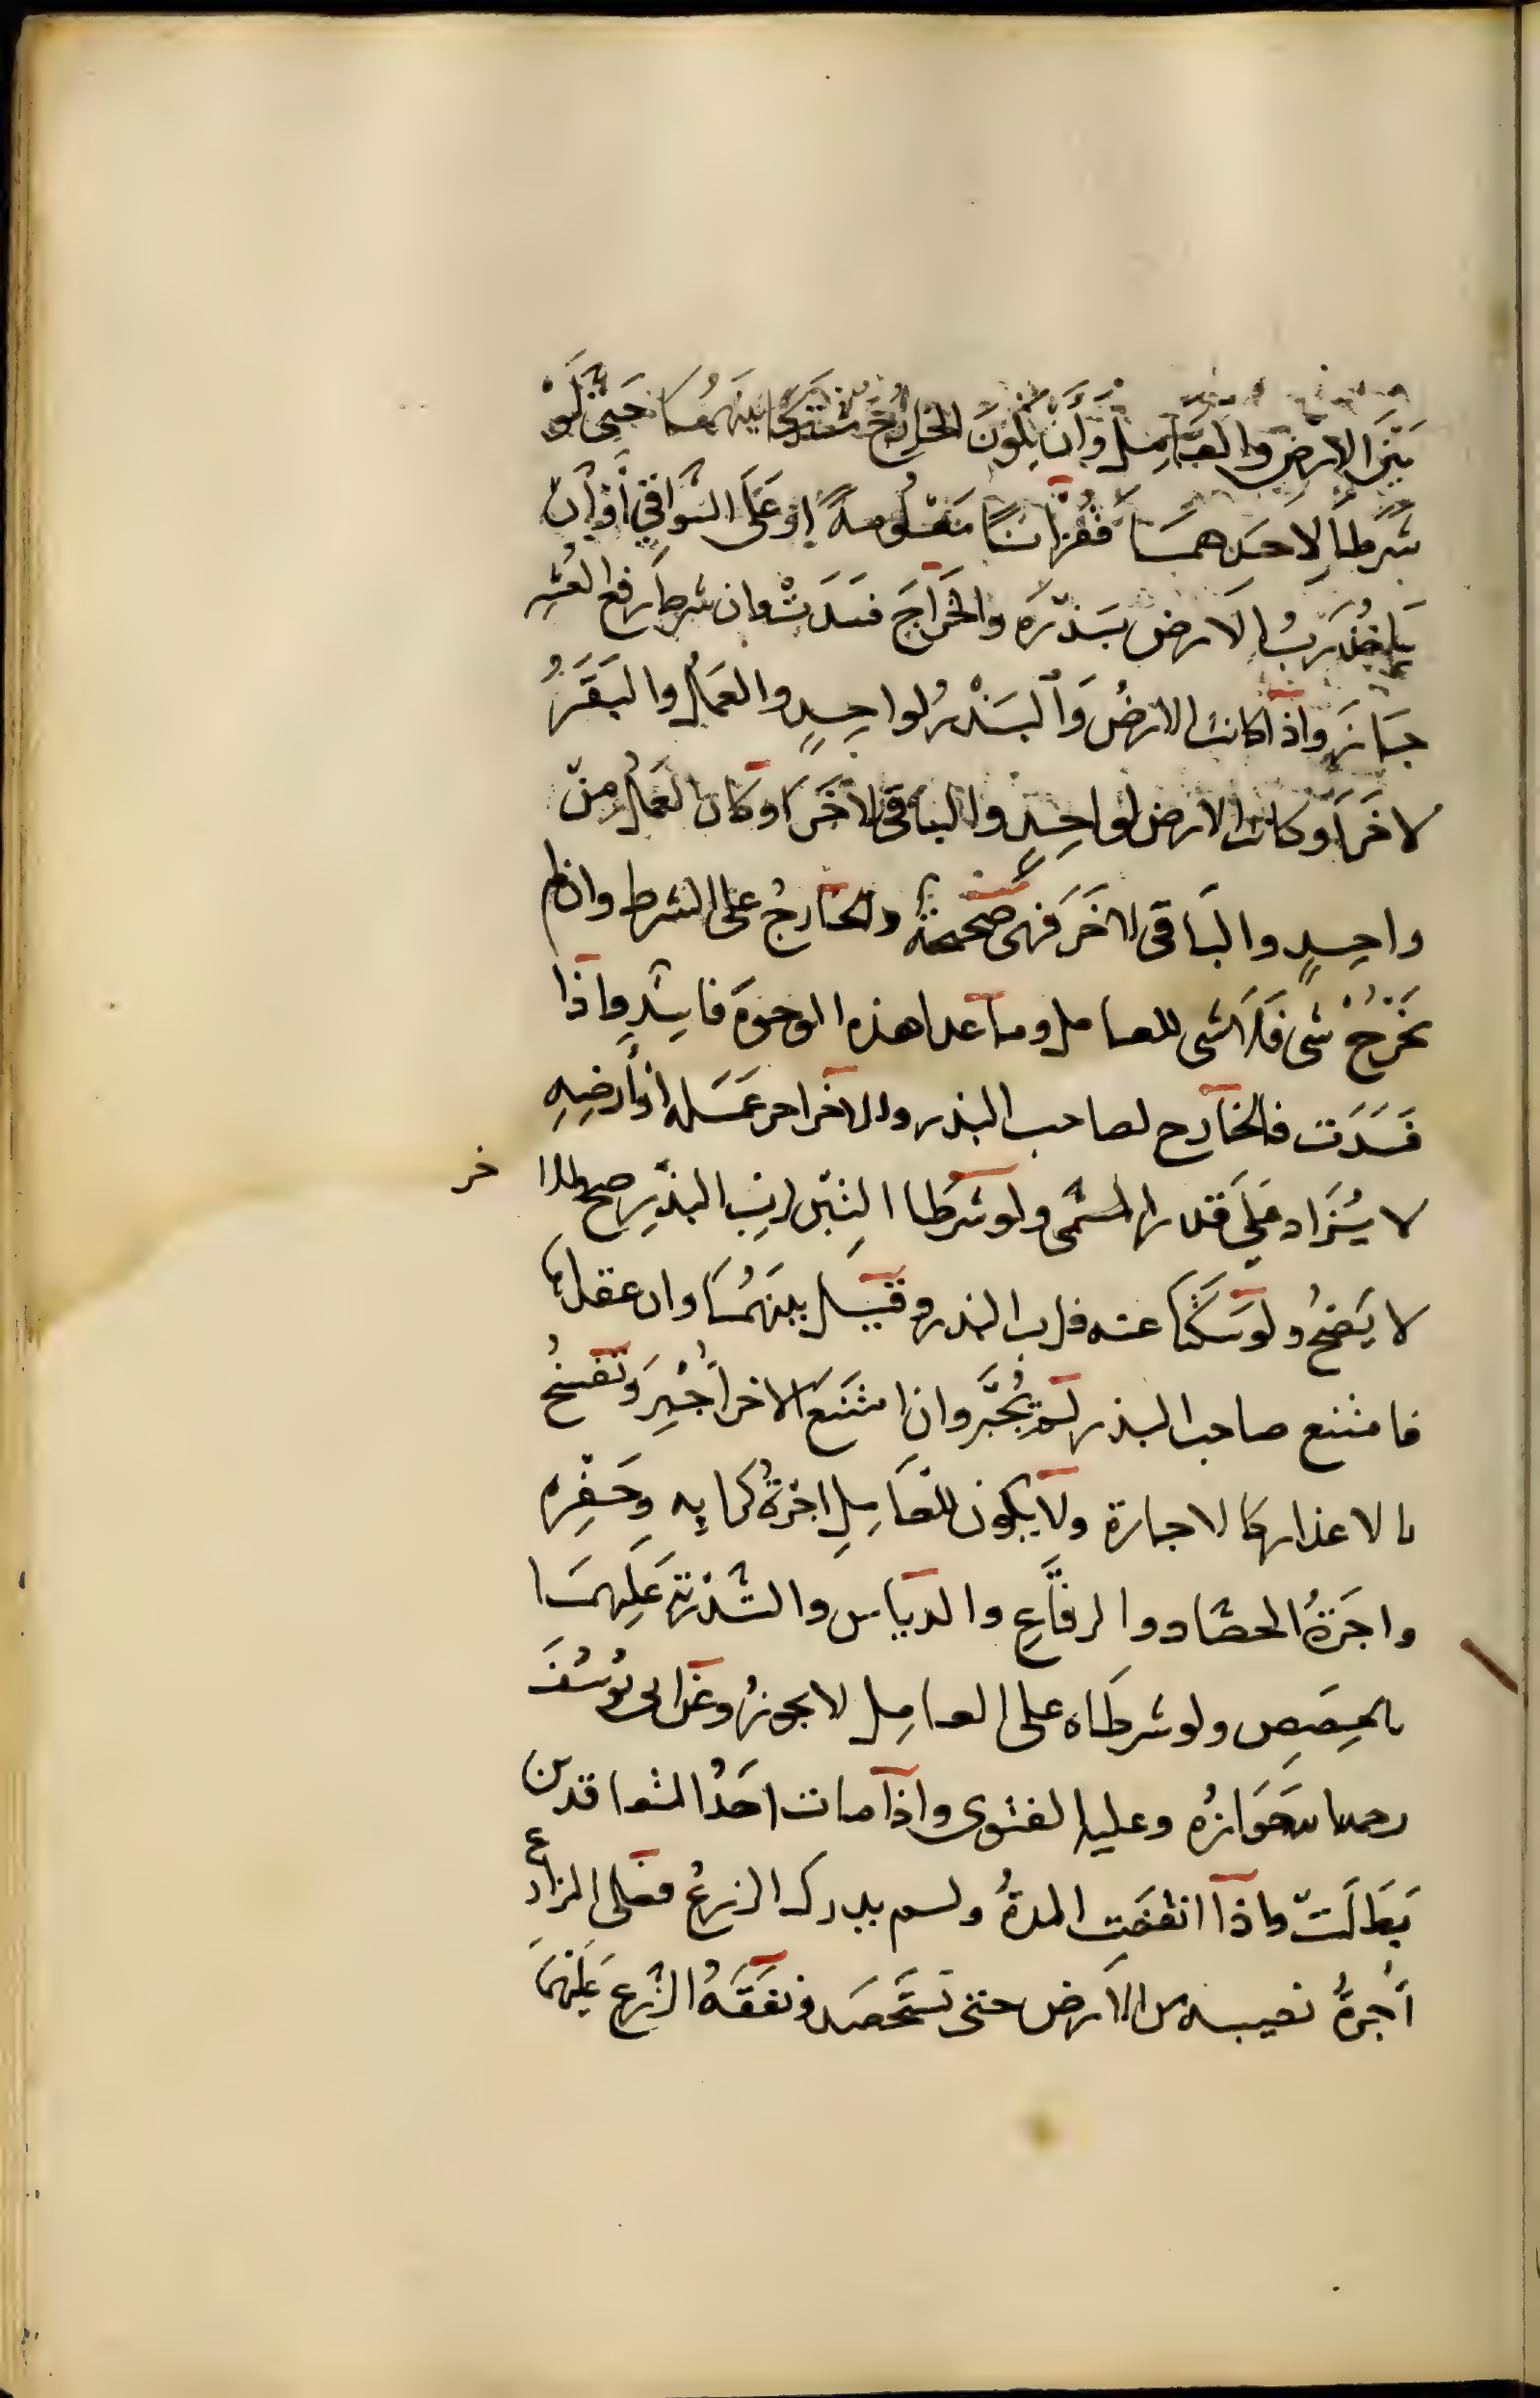 بَيْنَ الارضِ والعَامِلِ وَأَنْ يَكُونَ الخارِجُ مُشْتَرَكًا بَينَهُمَا حَتَّى لَوْ
شَرَطَا لِاحَدِهِمَا قُفْزَانًا مَعْلُومةً اوْ عَلَى السَّوَاقِي أَوْ أَن
يَاخُذَ رَبُّ الارض بَذْرَه والخَرَاجَ فسَدَتْ وان شرطا رفع العُشرِ
جَازَ واذا كانت الارضُ وَالبَذْرُ لواحِدٍ والعَمَلُ والبَقَرُ
لاخَرَ أو كانت الارض لواحِدٍ والباقى لاخَرَ او كان العَمَلُ مِنْ
واحِدٍ والبَاقى لاخَرَ فهى صحيحةٌ والخارجُ على الشرط وان لم
يَخْرُجْ شى فَلَا شى للعامل وما عدا هذه الوجوهَ فاسِدٌ واذا
فَسَدَت فالخارج لصاحب البذر وللاخر اجر عَمَله اوْ أرضِهِ
لا يُزَاد عَلَى قدر المسَمَّى ولو شَرَطا التِبْنَ لِرَبِّ البذْرِ صح وللا خر
لا يَصِحُّ ولو سَكَتَا عنه فلرب البذر وقيل بينَهُمَا وان عقداها
فامتنع صاحب البذر لم يُجْبَر وان امتَنَعَ الاخر أُجْبِرَ وَتفسخُ
بالاعذار كالاجارة ولا يكون للعَامِلِ اجْرةُ كرابِه وحَفْرِه
واجرَةُ الحصَاد والرفَاعِ والدياس والتَّذْرِية عَلَيهِمَا
بالحِصَصِ ولو شرطَاه على العامِل لا يجوزُ وعَن ابى يُوسُفَ
رحمه الله جَوَازُه وعليه الفتوى واذا مات احَدُ المتعاقدين
بَطَلَتْ واذا انقضَت المدةُ ولم يدرك الزرعُ فعَلى المزارع
أُجرةُ نصيبه من الارض حتى تستَحصد ونفَقَةُ الزَّرعِ عَلَيْهِمَا